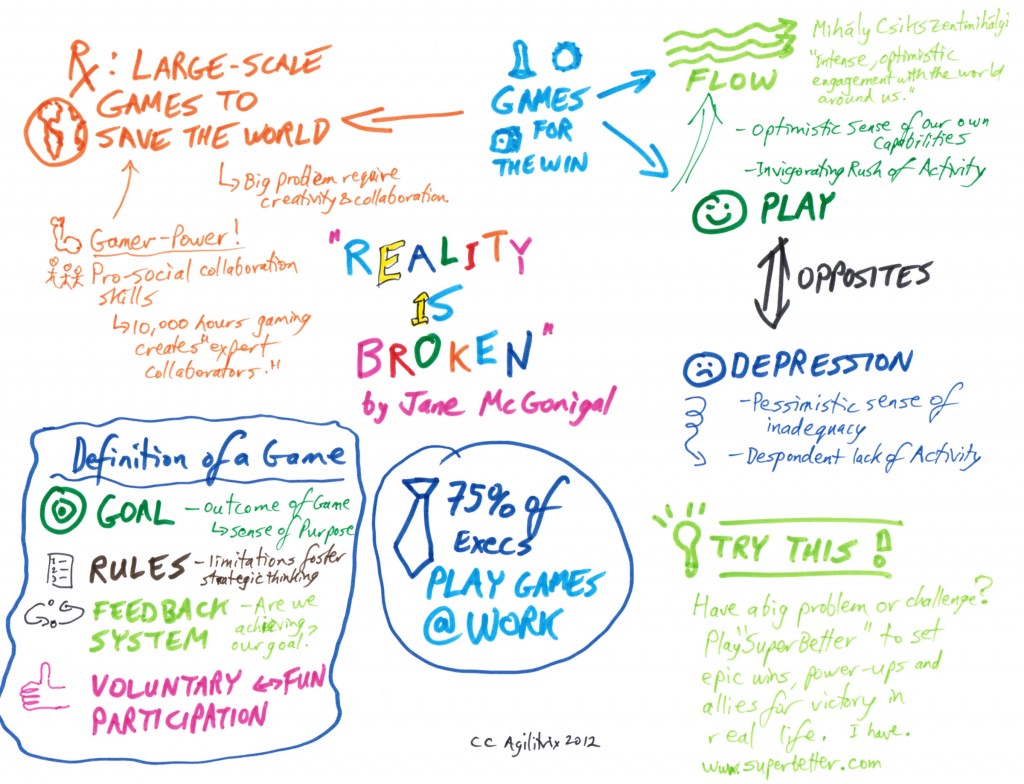 Rx: LARGE-SCALE
GAMES TO
SAVE THE WORLD
↳Big problem require
creativity & collaboration.
Gamer-Power!
Pro-social collaboration
skills
↳10,000 hours gaming
creates "expert
collaborators."
GAMES
FOR
THE WIN
FLOW
Mihály Csikszentmihályi
"Intense, optimistic
engagement with the world
around us."
-Optimistic Sense of our own
Capabilities
-Invigorating Rush of Activity
PLAY
OPPOSITES
DEPRESSION
-Pessimistic sense of
inadequacy
-Despondent lack of Activity
"REALITY
IS
BROKEN"
by Jane McGonigal
Definition of a Game
GOAL -outcome of Game
↳sense of Purpose
RULES -limitations foster
strategic thinking
FEEDBACK -Are we
SYSTEM achieving
our goal?
VOLUNTARY ↔FUN
PARTICIPATION
75% of
Execs
PLAY GAMES
@WORK
TRY THIS!
Have a big problem or challenge?
Play "SuperBetter" to set
epic wins, power-ups and
allies for victory in
real life. I have.
www.superbetter.com
CC Agilitrix 2012